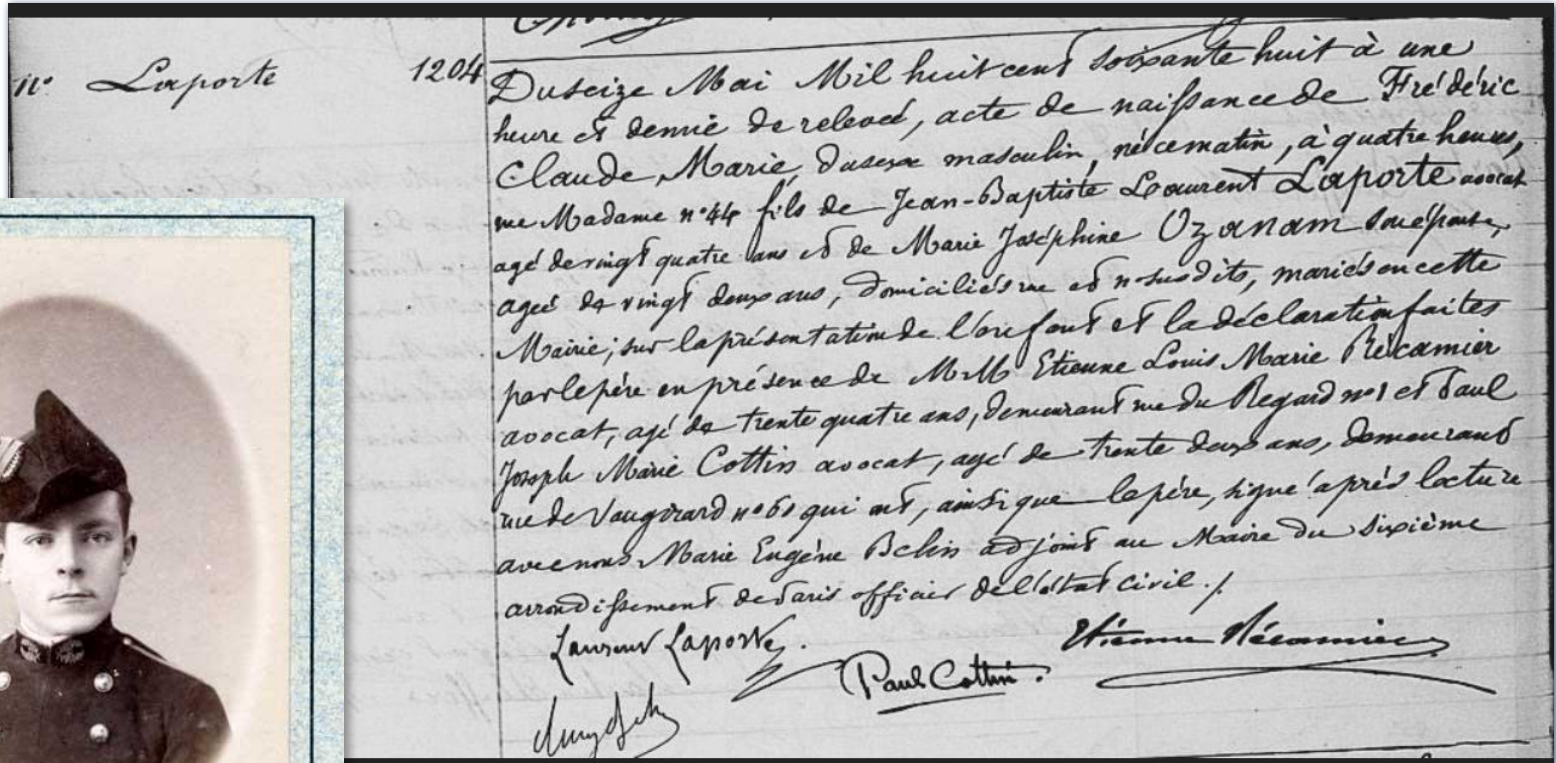 nº Laporte 1204
Du seize Mai Mil huit cent soixante huit à une
heure et demie de relevée, acte de naissance de Frédéric
Claude, Marie, du sexe masculin, né ce matin, à quatre heures,
rue Madame nº 44 fils de Jean-Baptiste Laurent Laporte avocat
agé de vingt quatre ans et de Marie Joséphine Ozanam son épouse,
agée de vingt deux ans, domiciliés rue et nº susdits, mariés en cette
Mairie; sur la présentation de l'enfant et la déclaration faites
par le père en présence de MM Etienne Louis Marie Récamier
avocat, agé de trente quatre ans, demeurant rue du Regard nº 1 et Paul
Joseph Marie Cottin avocat, agé de trente deux ans, demeurant
rue de Vaugirard nº 60 qui ont, ainsi que le père, signé après lecture
avec nous Marie Eugène Belin adjoint au Maire du sixième
arrondissement de Paris officier de l'état civil ./
Laurent Laporte. Etienne Récamier
Paul Cottin.